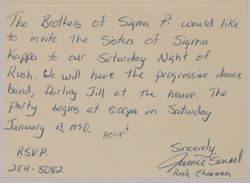 The Brothers of Sigma P. would like
to invite the Sisters of Sigma
Kappa to our Saturday Night of
Rush. We will have the progressive dance
band, Darling Jill at the house. The
party begins at 8:00pm on Saturday
January 13, 1990.
Accept
Sincerely
R.S.V.P.
254-8082.
Rush Chairman